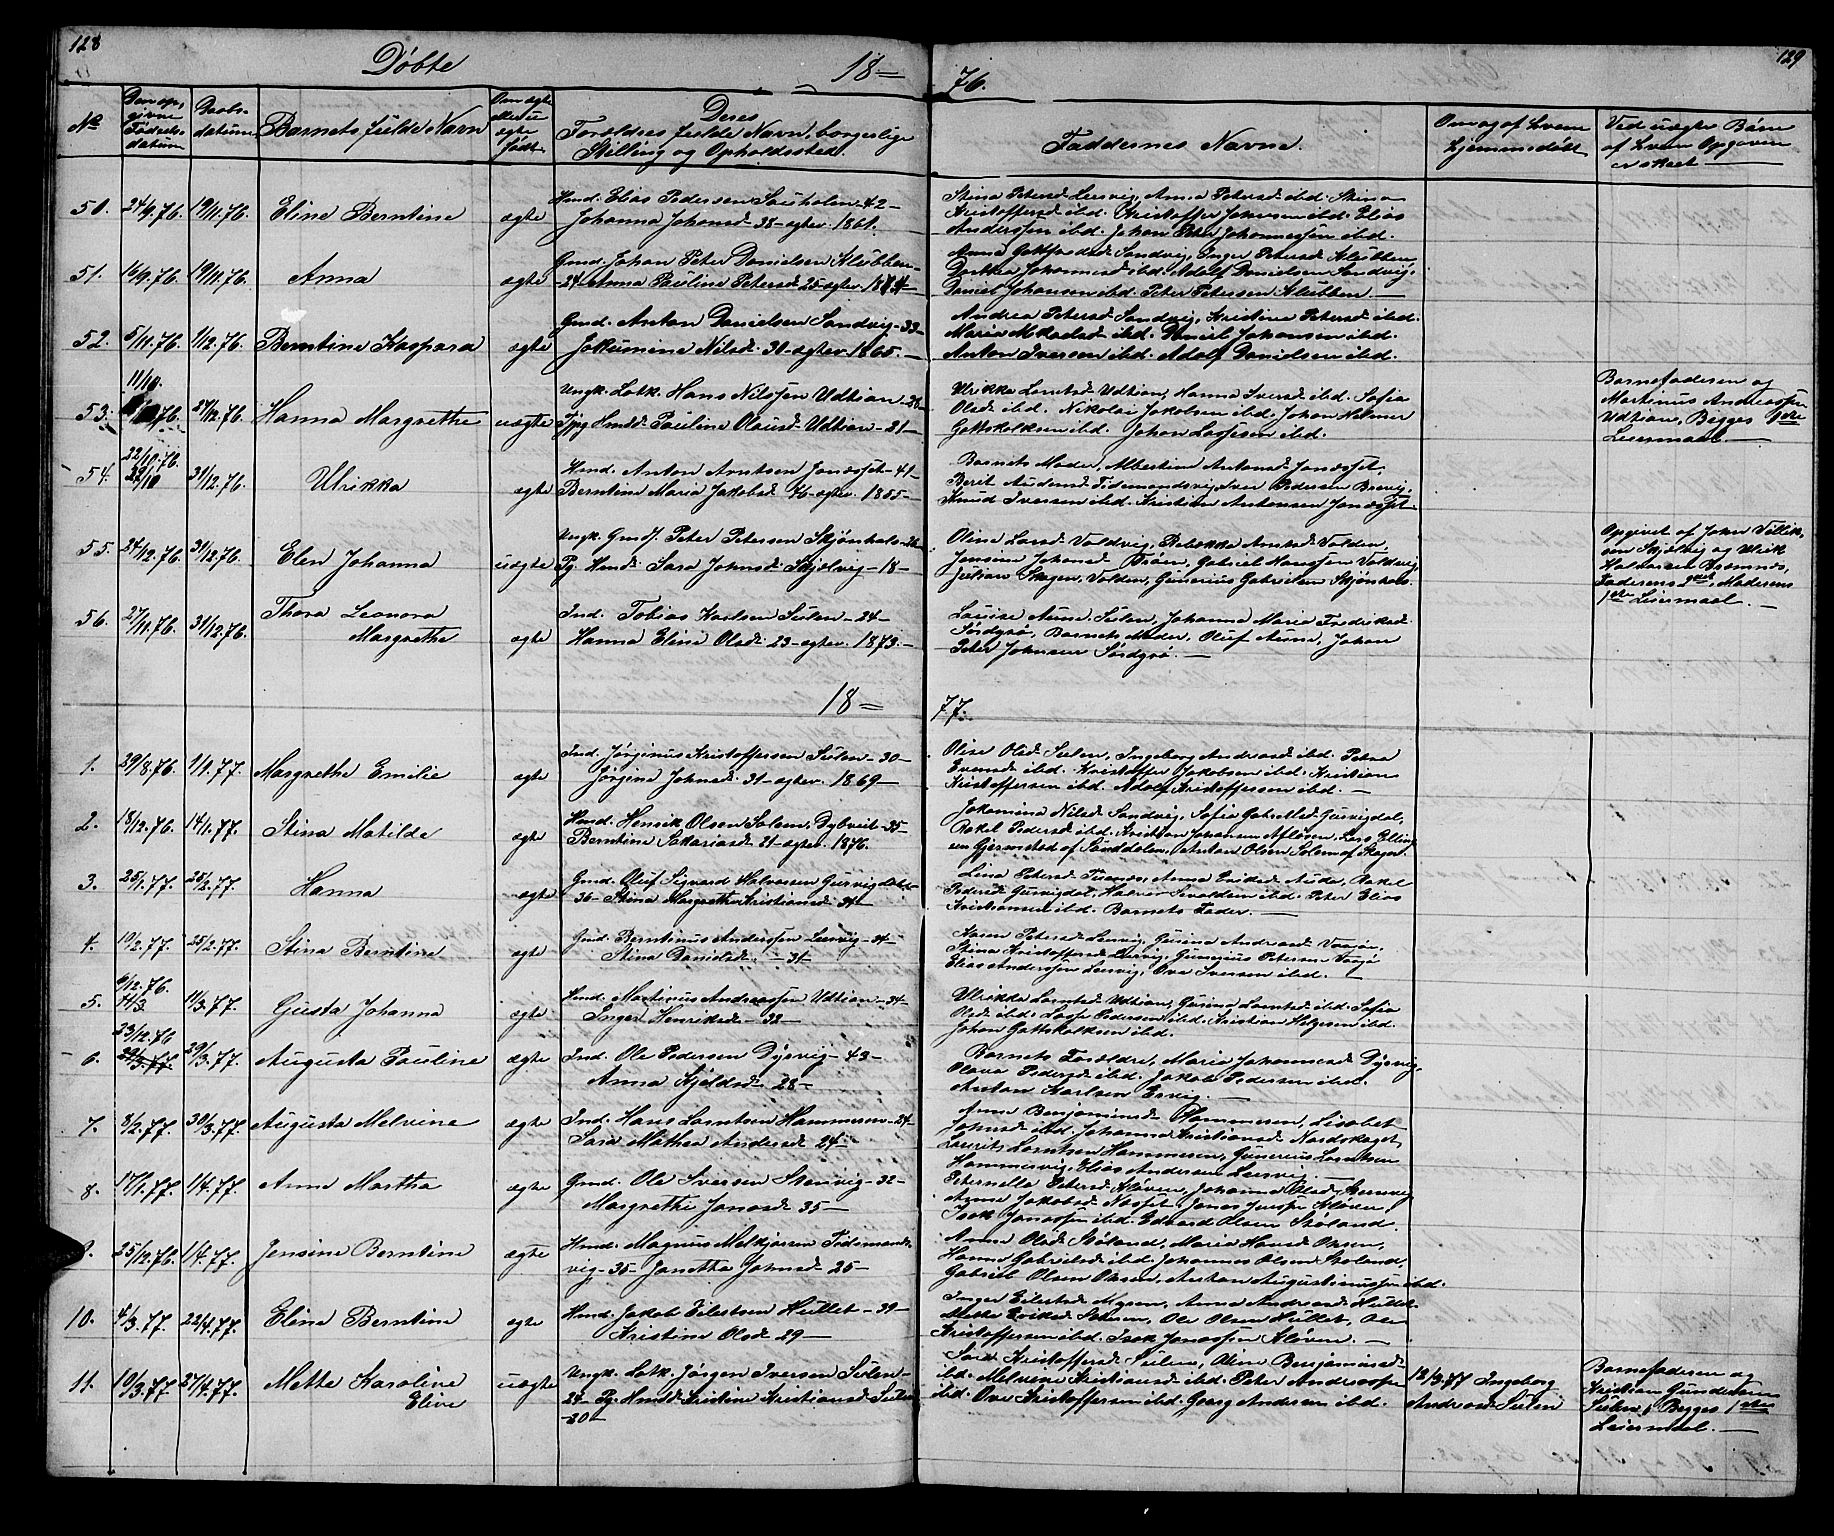 128
129
Døbte
18=
76.
No
Den op-
givne
Fødsels-
datum
Daabs-
datum
Barnets fulde Navn
Om ægte
eller u-
ægte
født.
Deres
Forældres fulde Navn, borgerlige
Stilling og Opholdssted.
Faddernes Navne.
Om og af hvem
hjemmedøbt
Ved uægte Børn
af hvem Opgaven
er skeet
50. 24/9.76. 19/11.76. Eline Berntine ægte
Hmd. Elias Pedersen Sauholm 42-
Johanna Johansd. 38- ægtev. 1861.
Stina Petersd. Leervig, Anna Petersd. ibd. Stina
Kristoffersd. ibd. Kristoffer Johnsen ibd. Elias
Anderssen ibd. Johan Peter Johannessen ibd.
51. 16/9.76. 19/11.76. Anna ægte
Gmd. Johan Peter Danielsen Klubben-
-24- Anna Pauline Petersd. 25- ægtev. 1874-
Anna Gottfredsd. Sandvig, Inger Petersd. Klubben
Dorthea Johannesd. ibd. Adolf Danielsen Sandvig,
Daniel Johansen ibd. Peter Petersen Klubben.-
52. 5/11.76. 1/12.76. Berntine Kaspara ægte
Gmd. Anton Danielsen Sandvig-33-
Jokumine Nilsd. 30- ægtev. 1865.-
Andrea Petersd. Sandvig, Kristine Petersd. ibd.
Maria ibd. Daniel Johansen ibd.
Anton Iversen ibd. Adolf Danielsen ibd.
53. 11/10. 76. 27/12.76. Hanna Margrethe uægte
Ungk. Lotk. Hans Nilssen Udtian-28-
Pg. Hmdd. Pauline Olausd. Udtian-21-
Ulrikka Lorntsd. Udtian, Hanna Iversd. ibd. Sofia
Olsd. ibd. Nikolai Jakobsen ibd. Johan Hemer
Gottskolksen ibd. Johan Lassesen ibd.
Barnefaderen og
Martinus Andreassen
Udtian, Begges 1ste
Leiermaal.-
54. 22/10.76. 31/12.76. Ulrikka ægte
Hmd. Anton Arntsen Jonæsset-41-
Berntine Maria Jakobsd. 46- ægtev. 1855-
Barnets Moder, Albertine Antonsd. Jonæsset,
Berit Andersd. Tidemandsvig, Iver Pedersen Brevig,
Knud Iversen ibd. Kristian Antonsen Jonæsset-
55. 24/12.76. 31/12.76. Elen Johanna uægte
Ungk. Gmd. Peter Petersen Skjønhals-26-
Pg. Hmdd. Sara Johnsd. Skjælvig-18-
Oline Larsd. Valdvig, Rebekka Arntsd. Valden,
Jensine Johansd. Drøn, Gabriel Hanssen Valdvig,
Julian Skagen, Valden, Gunerius Gabrielsen Skjønhals.
Opgivet af Johan Villik-
sen Skjælvig og Ulrik
Halvorsen Bremnæs,
Faderens 2det, Moderens
1ste Leiermaal.-
56. 27/11.76. 31/12.76. Thora Leonora
Margrethe ægte
Ind. Tobias Karlsen Sulen-24-
Hanna Elise Olsd. 23- ægtev. 1873.-
Louise Aune Sulen, Johanna Maria Fredriksd.
Sørdyrø, Barnets Moder, Oluf Aune, Johan
Peter Johnsen Sørdyrø.-
18=
77.
1. 29/8.76. 1/1.77. Margrethe Emilie ægte
Ind. Jørginus Kristoffersen Sulen-30-
Jørgine Johnsd. 31- ægtev. 1869-
Olise Olsd. Sulen, Ingeborg Andreasd. ibd. Petra
Evensd. ibd. Kristoffer Jakobsen ibd. Kristian
Kristoffersen ibd. Adolf Kristoffersen ibd.-
2. 18/12.76. 14/1.77. Stina Matilda ægte
Hmd. Henrik Olsen Solem, Dybveit-35-
Berntine Sakariasd. 21- ægtev. 1876.
Jokumina Nilsd. Sandvig, Sofia Gabrielsd. Gurvigdal,
Rakel Pedersd. ibd. Kristian Johansen Afløsen, Lars Elling-
sen Gjermstad af Sunddalen, Anton Olsen Solem af Skogn.
3. 25/1.77. 25/2.77. Hanna ægte
Gmd. Oluf Sigvard Halvorsen Gurvigdal-
36- Stina Margrethe Kristiansd. 34-
Lina Petersd. Anna Auda, Rakel
Pedersd. Gurvigdal, Halvor Sivaldsen ibd. Peter Elias
Kristiansen ibd. Barnets Fader.-
4. 19/2.77. 25/2.77. Stina Berntine ægte
Gmd. Berntinus Anderssen Leervig-34-
Stina Danielsd.-31-
Karen Petersd. Leervig, Gurina Andreasd. Vaagø,
Stina Kristoffersd. Leervig, Gunerius Petersen Vaagø
Elias Anderssen Leervig, Ove Iversen ibd.-
5. 6/12.76. 11/3. 11/3.77. Gusta Johanna ægte
Hmd. Martinus Andreassen Udtian-34-
Inger Henriksd.-32-
Ulrikka Lorntsd. Udtian, Gurina Lorntsd. ibd. Sofia
Olsd. ibd. Lasse Pedersen ibd. Kristian Helgesen ibd.
Johan Gottskolksen ibd.
6. 23/12.76 29/3.77. Augusta Pauline ægte
Ind. Ole Pedersen Dyrvig-43-
Anna Kjeldsd. 28-
Barnets Forældre, Maria Johannesd. Dyrvig,
Olava Pedersd. ibd. Jakob Pedersen ibd.
Anton Karlsen Ervig.-
7. 8/2.77. 30/3.77. Augusta Melvine ægte
Ind. Hans Lorntsen Hammeren-24-
Sara Mathea Andersd. 24-
Anne Benjaminsd. Hammeren, Lisabet
Johnsd. ibd. Johanna Kristiansd. Nordskaget,
Laurits Lorntsen Hammeren, Gunerius Lorntsen
Hammervig, Elias Andersen Leervig.-
8. 17/1.77. 1/4.77. Anne Martha ægte
Gmd. Ole Iversen Stenvig-32-
Margrethe Jonasd. 35-
Peternella Petersd. Kløven, Johanna Olsd. Stenvig
Anne Jakobsd. Næsset, Jonas Kløven,
Isak Jonassen ibd. Edvard Olsen Støland.
9. 25/12.76. 1/4.77. Jensine Berntine ægte
Hmd. Magnus Melkjorsen Tidemands-
vig-35- Janetha Johnsd.-25-
Anne Olsd. Støland, Maria Hansd. Oksen,
Hanna Gabrielsd. ibd. Johannes Olsen Støland,
Gabriel Olsen Oksen, Anton Augustinussen ibd.
10. 4/3.77. 22/4.77. Eline Berntine ægte
Hmd. Jakob Eilertsen Hullet-39-
Kristine Olsd. 29-
Inger Eilertsd. Myren, Anne Andreasd. Hullet
Mette Eriksd. Ole Olsen Hullet, Ole
Kristoffersen ibd. Isak Jonassen Kløven.-
11. 10/3.77. 27/4.77. Mette Karoline
Elive uægte
Ungk. Lotk. Jørgen Iversen Sulen-
-23- Pg. Hmdd. Kristine Kristiansd. Sulen
-20-
Sara Kristoffersd. Sulen, Oline Benjaminsd.
ibd. Melvine Kristiansd. ibd. Peter Andreassen
ibd. Ove Kristoffersen ibd. Georg Andersen ibd.
12/3.77 Ingeborg
Andreasd. Sulen
Barnefaderen og
Kristian Gundersen
Sulen, Begges 1ste
Leiermaal.-